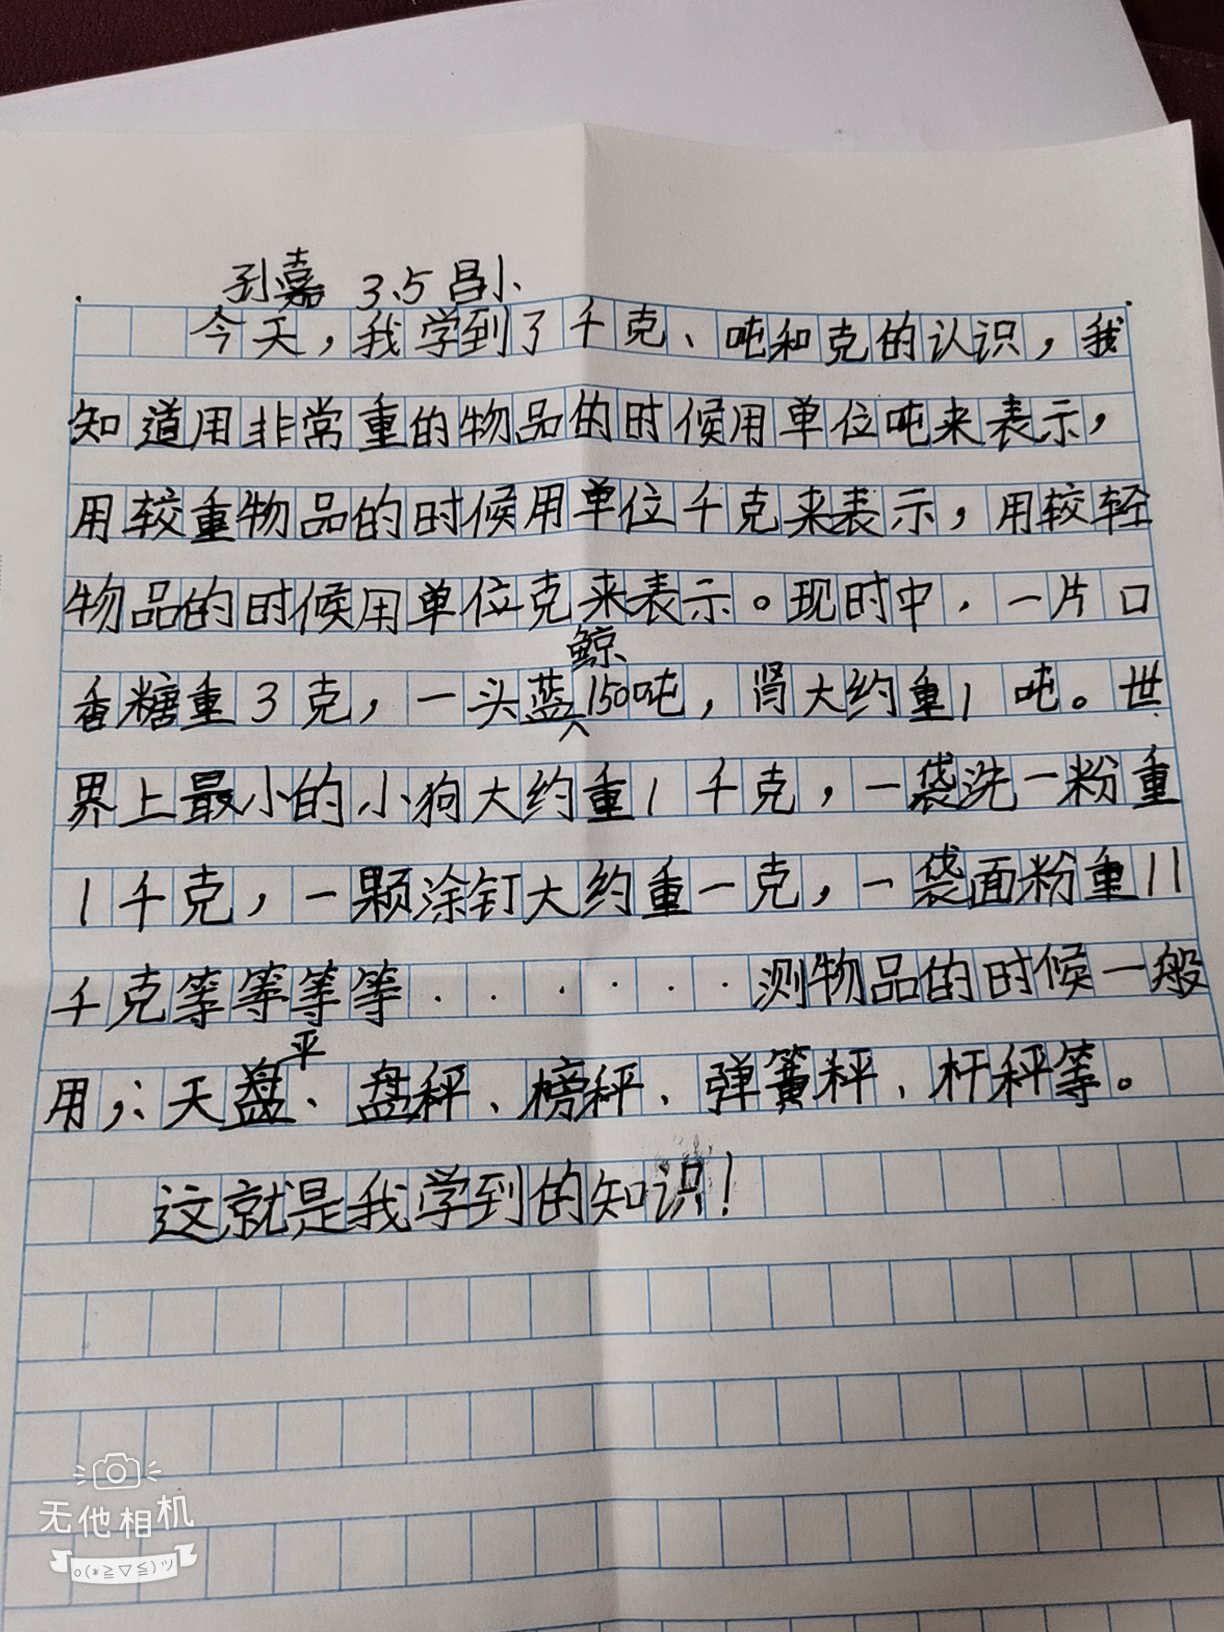 孙嘉 3.5 吕小
今天，我学到了千克、吨和克的认识，我
知道用非常重的物品的时候用单位吨来表示，
用较重物品的时候用单位千克来表示，用较轻
物品的时候用单位克来表示。现时中，一片口
香糖重3克，一头蓝鲸150吨，肾大约重1吨。世
界上最小的小狗大约重1千克，一袋洗一粉重
1千克，一颗涂钉大约重一克，一袋面粉重11
千克等等等等······测物品的时候一般
用，：天平盘、盘秤、榜秤、弹簧秤、杆秤等。
这就是我学到的知识！
无他相机
o(*≧▽≦)ツ